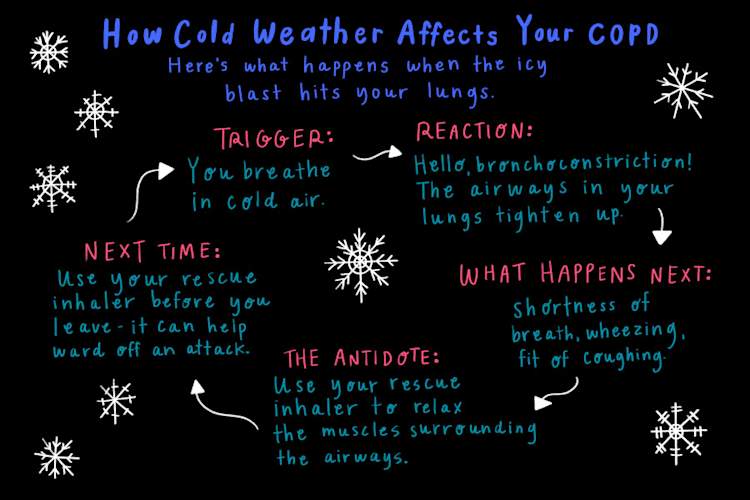 How Cold Weather Affects Your COPD
Here's what happens when the icy
blast hits your lungs.
TRIGGER:
You breathe
in cold air.
REACTION:
Hello, bronchoconstriction!
The airways in your
lungs tighten up.
WHAT HAPPENS NEXT:
Shortness of
breath, wheezing,
fit of coughing.
THE ANTIDOTE:
Use your rescue
inhaler to relax
the muscles surrounding
the airways.
NEXT TIME:
Use your rescue
inhaler before you
leave - it can help
ward off an attack.